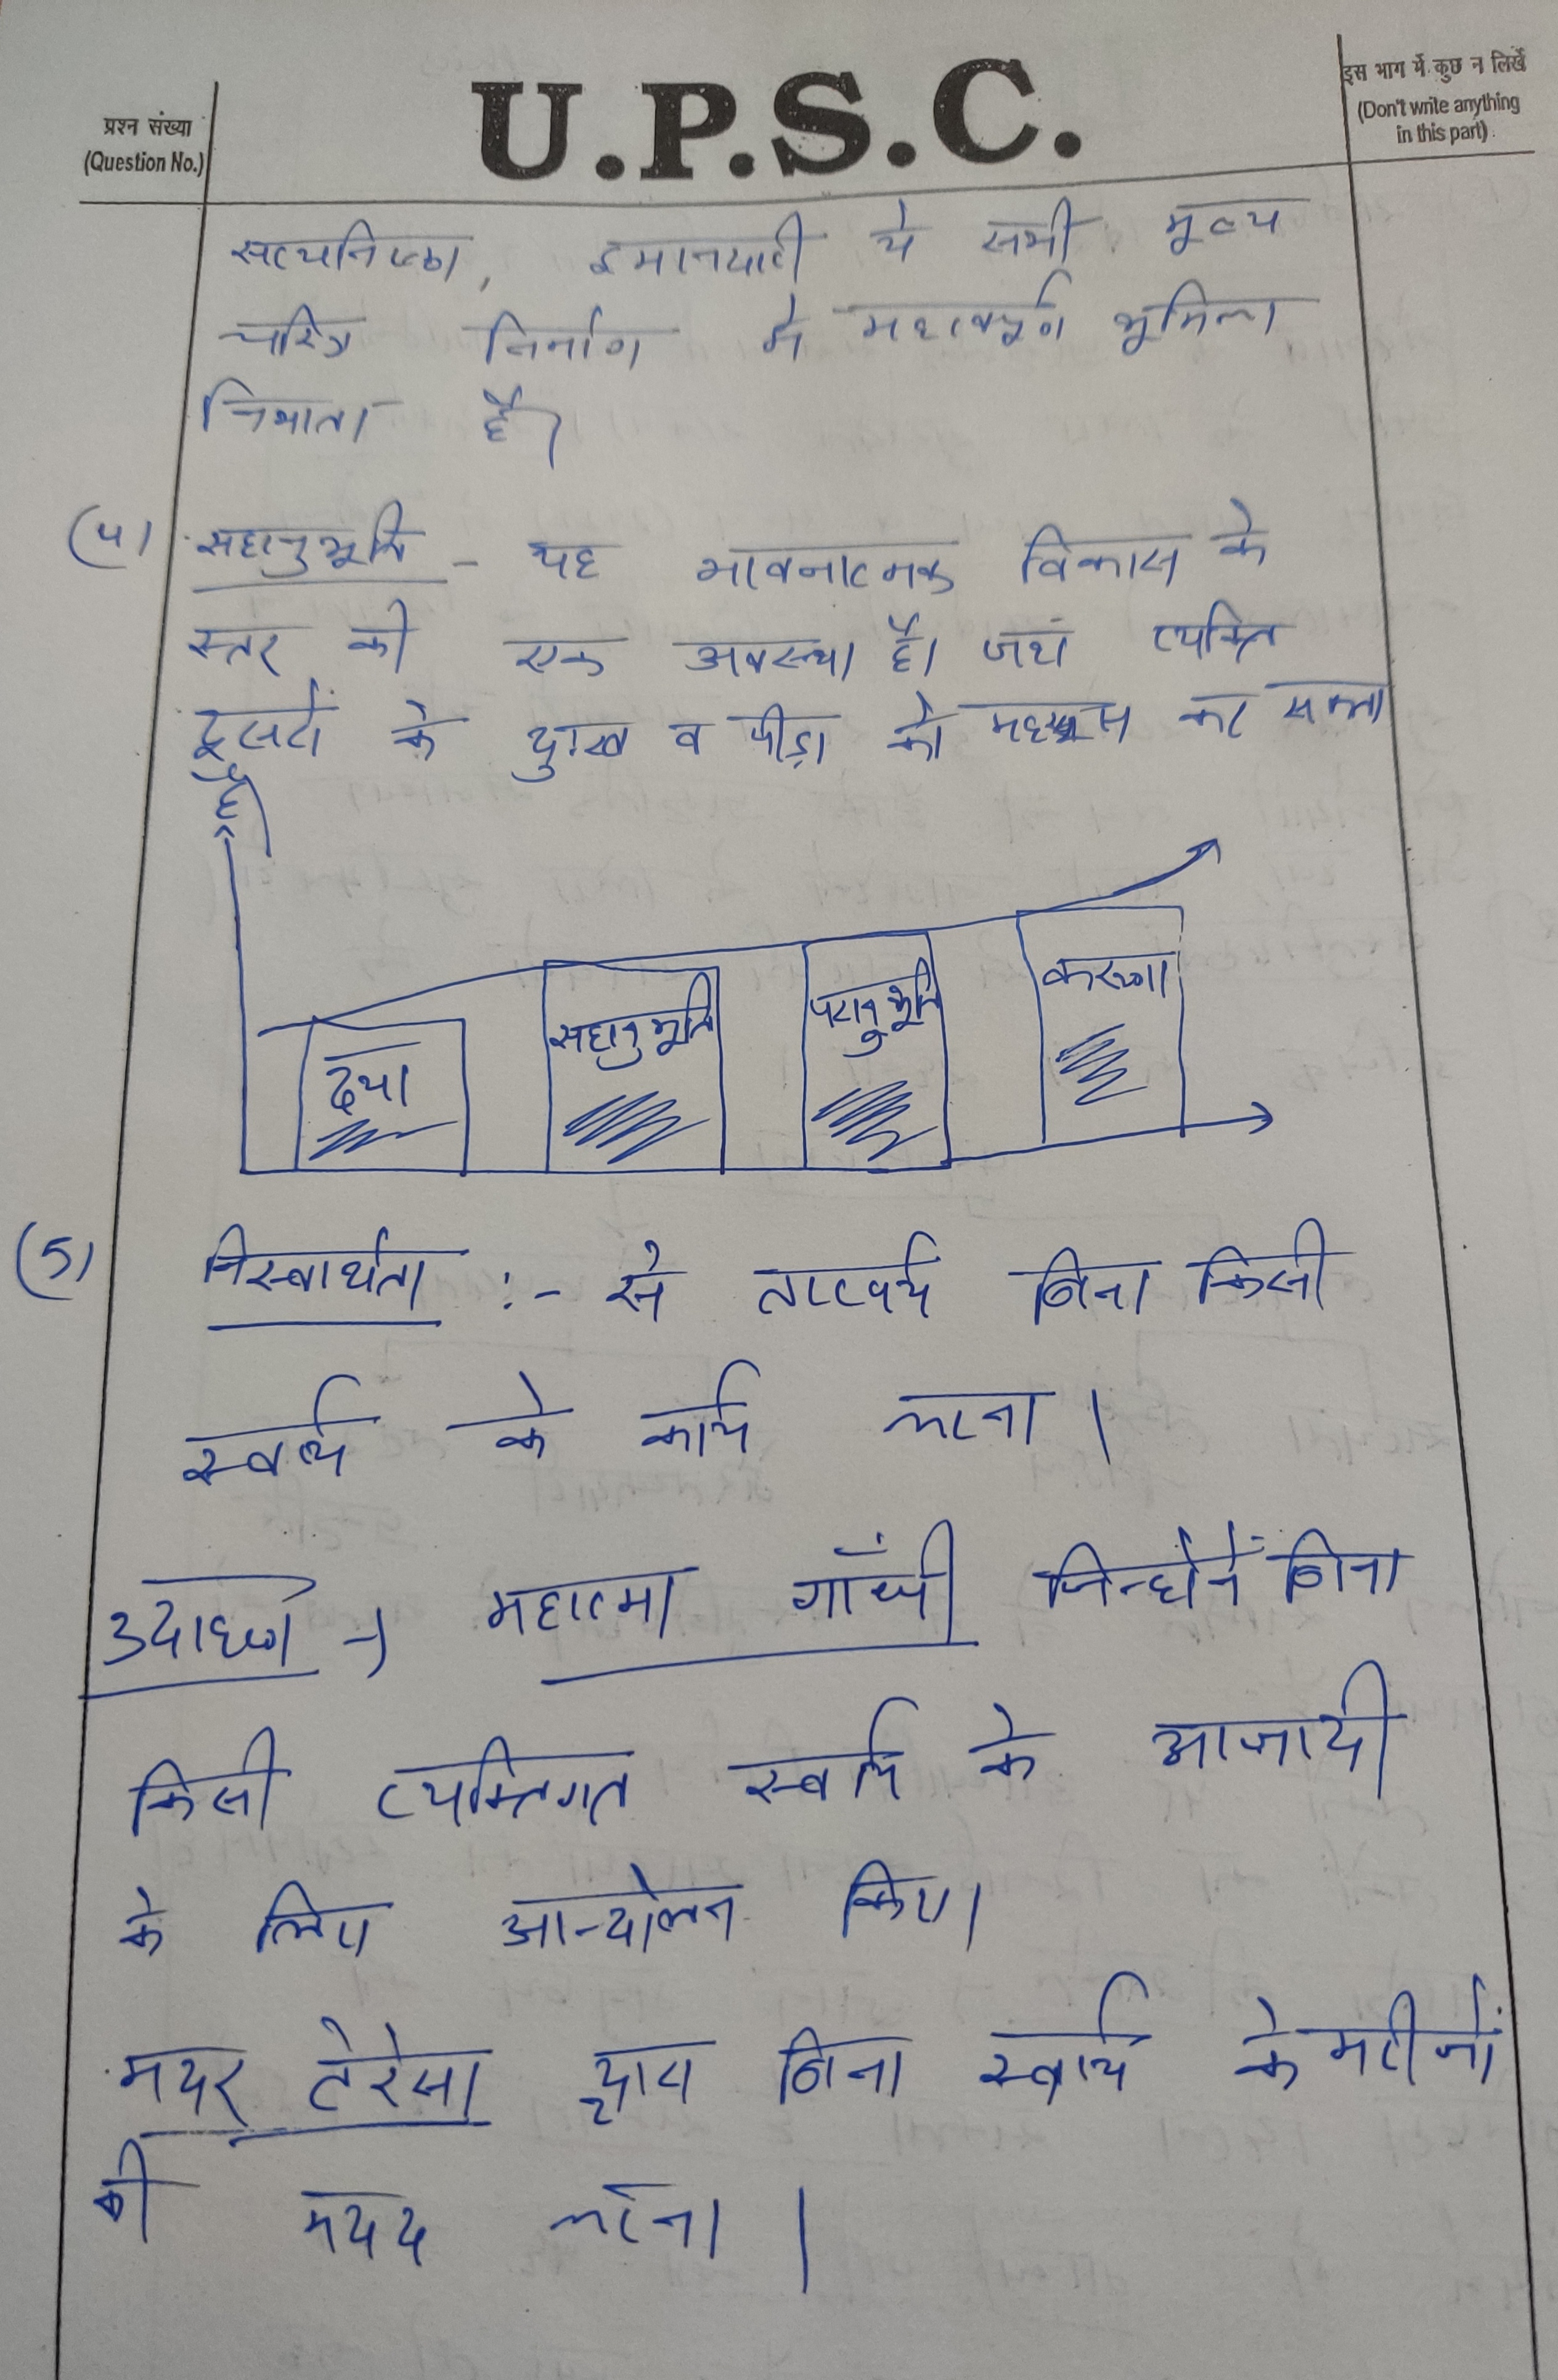 प्रश्न संख्या
(Question No.)
U.P.S.C.
इस भाग में कुछ न लिखें
(Don't write anything
in this part)
सत्यनिष्ठा, इमानदारी ये सभी मूल्य
चरित्र निर्माण में महत्वपूर्ण भूमिका
निभाता है।
(4) सहानुभूति - यह भावनात्मक विकास के
स्तर की एक अवस्था है। जहां व्यक्ति
दूसरों के दुःख व पीड़ा को महसूस कर सकता
है।
दया
सहानुभूति
परानुभूति
करुणा
(5) निस्वार्थता :- से तात्पर्य बिना किसी
स्वार्थ के कार्य करना।
उदाहरण → महात्मा गाँधी जिन्होंने बिना
किसी व्यक्तिगत स्वार्थ के आजादी
के लिए आन्दोलन किए।
मदर टेरेसा द्वारा बिना स्वार्थ के मरीजों
की मदद करना।